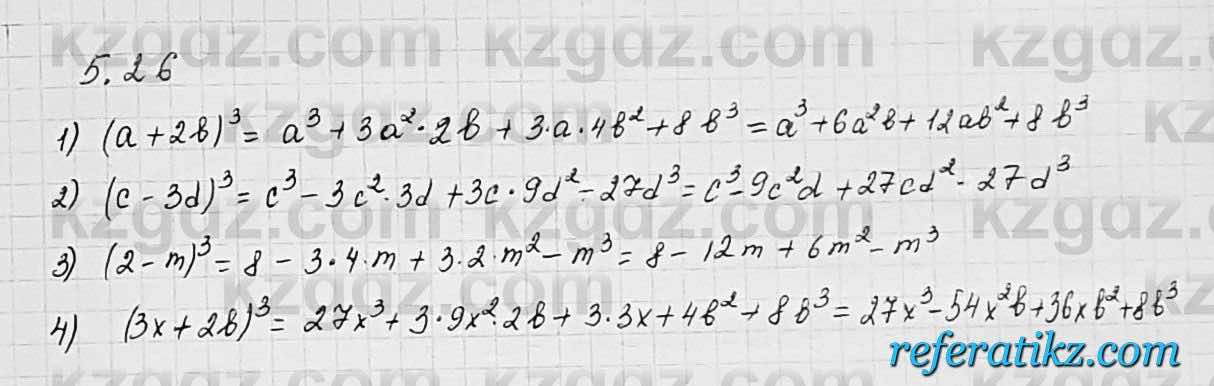 kzgdz.com kzgdz.com
5.26
1) (a + 2b)³ = a³ + 3a²·2b + 3·a·4b² + 8b³ = a³ + 6a²b + 12ab² + 8b³
2) (c - 3d)³ = c³ - 3c²·3d + 3c·9d² - 27d³ = c³ - 9c²d + 27cd² - 27d³
3) (2 - m)³ = 8 - 3·4·m + 3·2·m² - m³ = 8 - 12m + 6m² - m³
4) (3x + 2b)³ = 27x³ + 3·9x²·2b + 3·3x + 4b² + 8b³ = 27x³ - 54x²b + 36xb² + 8b³
referatikz.com